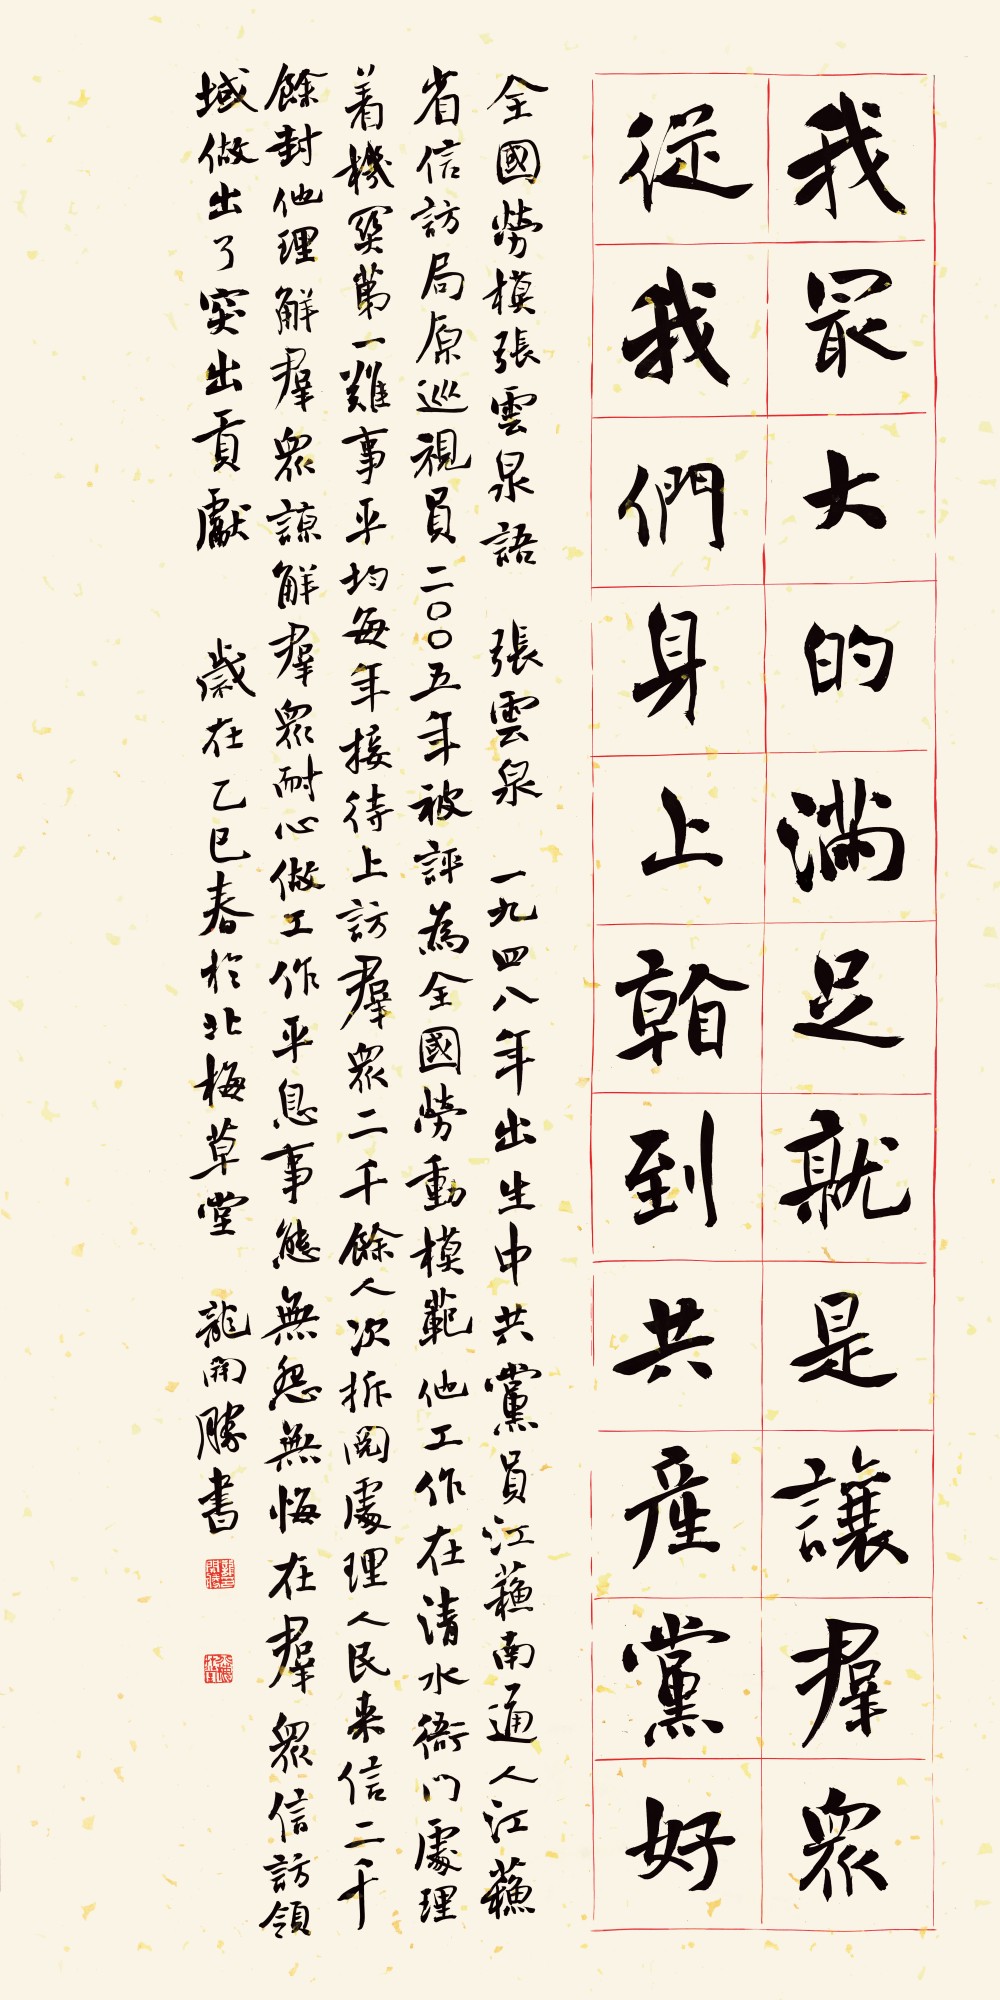 我最大的滿足就是讓群眾
從我們身上看到共產黨好
全國勞模張雲泉語 張雲泉 一九四八年出生中共黨員江蘇南通人江蘇
省信訪局原巡視員二〇〇五年被評為全國勞動模範他工作在清水衙門處理
着機関第一難事平均每年接待上訪群眾二千餘人次拆閱處理人民来信二千
餘封他理解群眾諒解群眾耐心做工作平息事態無怨無悔在群眾信訪領
域做出了突出貢獻 歲在乙巳春於北梅草堂 龍開勝書